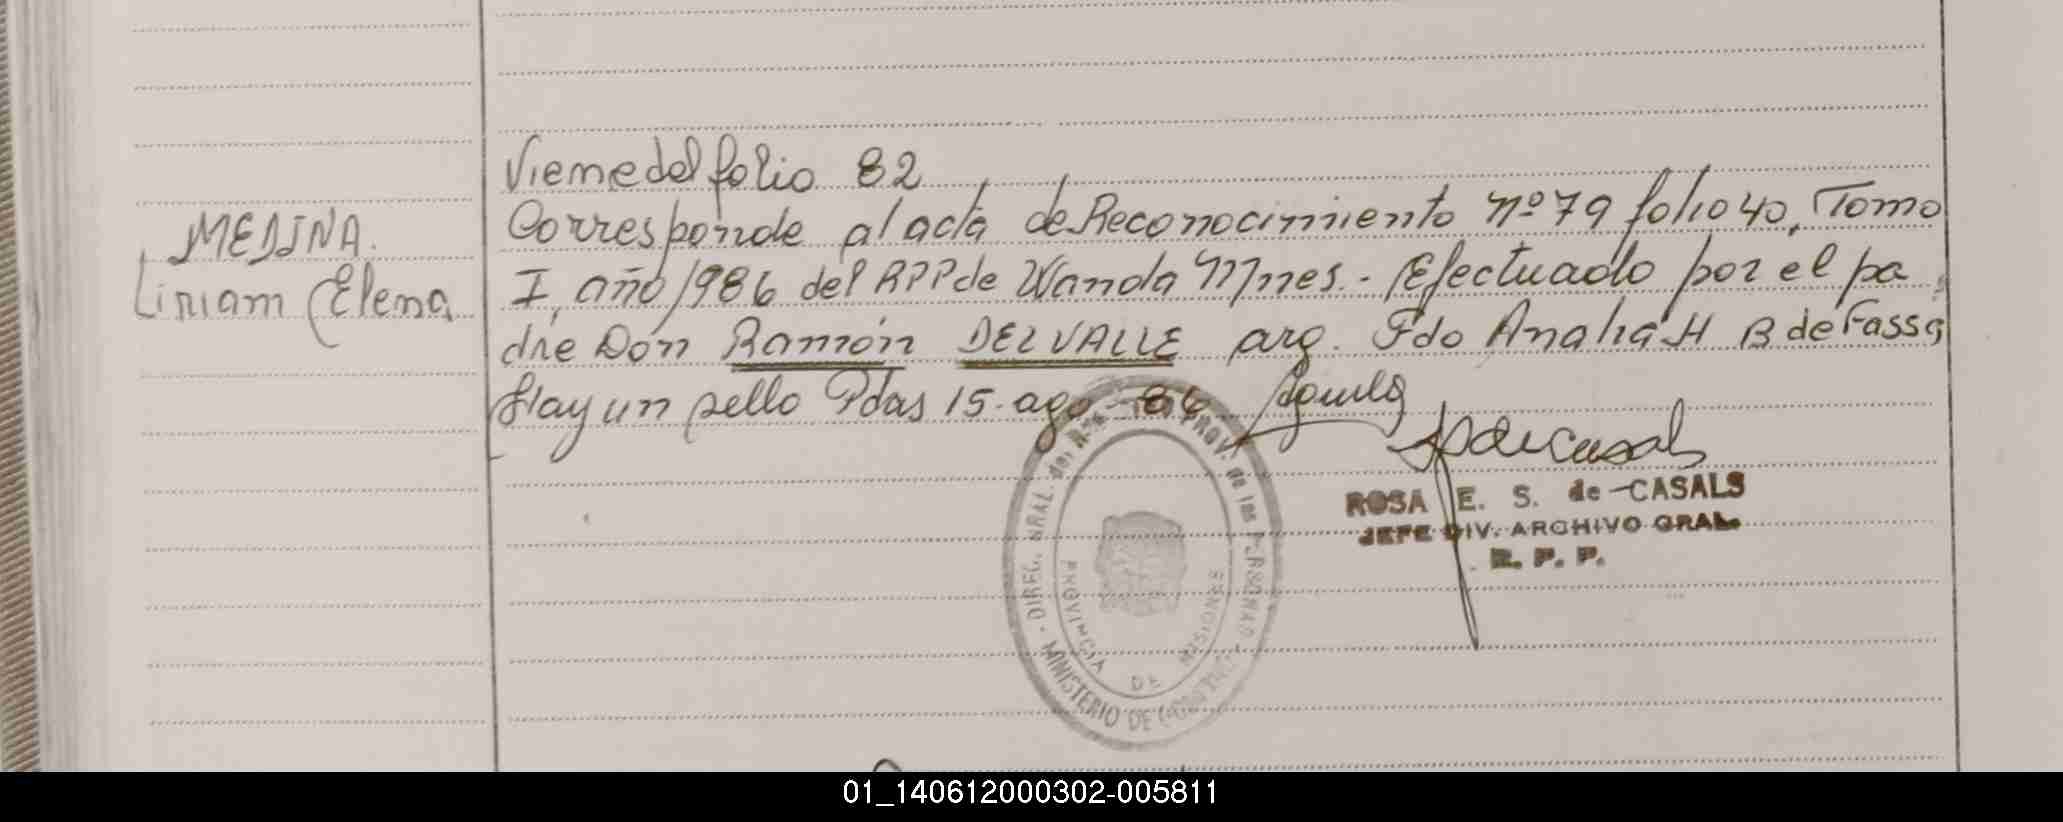 Viene del folio 82
MEDINA.
Liriam Elena
Corresponde al acta de Reconocimiento nº 79 folio 40, Tomo
I, año 1986 del RPP de Wanda Mnes. - Efectuado por el pa
dre Don Ramón DEL VALLE arg. Fdo Analia H B de Fassa
Hay un sello Pdas 15-ago-86
ROSA E. S. de CASALS
JEFE DIV. ARCHIVO GRAL.
R. P. P.
DIREC. GRAL. del PROV. de las PERSONAS
MINISTERIO DE
PROVINCIA DE MISIONES
01_140612000302-005811